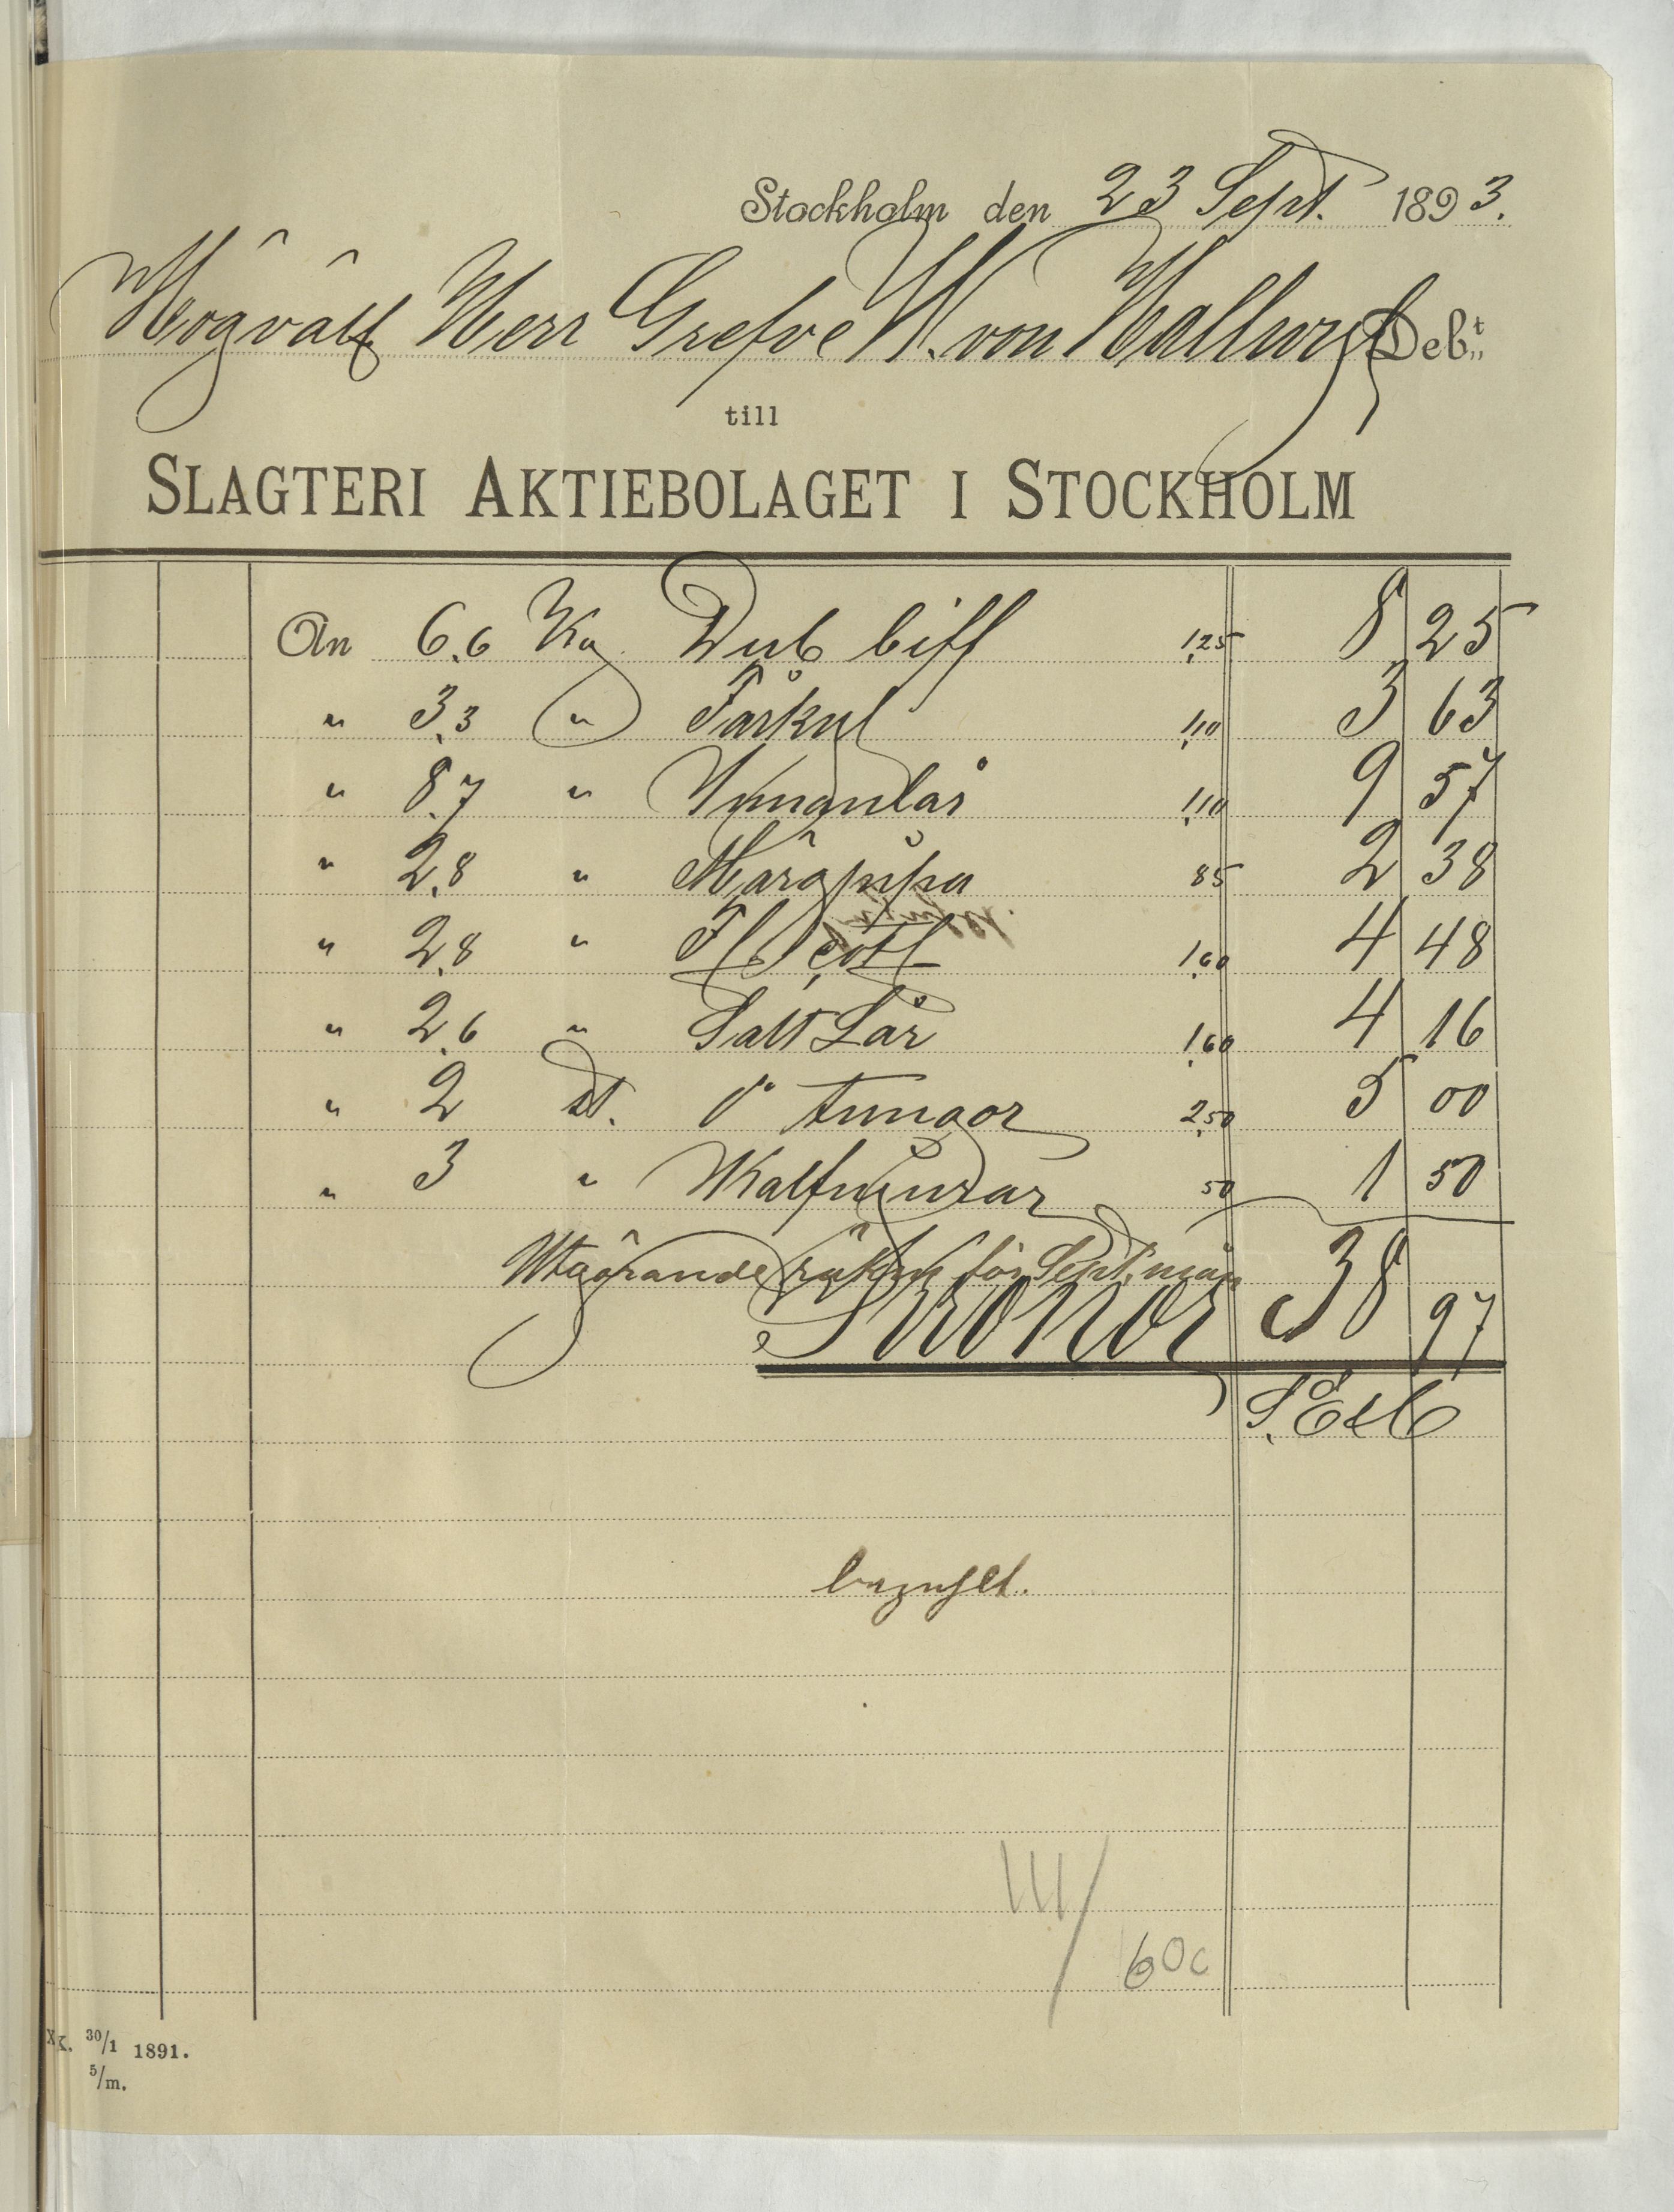 Stockholm den 23 Sept. 1893.
Högväl Herr Grefve W. von Hallwyl Deb:t
till
SLAGTERI AKTIEBOLAGET I STOCKHOLM
An 6.6 Kg Dub biff 1,25 8 25
" 3.3 " Fårkyl 1,10 3 63
" 8.7 " 1,10 9 57
" 2.8 " Märgpipa 85 2 38
" 2.8 " Fl. Cotl 1,60 4 48
" 2.6 " Salt Lår 1,60 4 16
" 2 st. d:o tungor 2,50 5 00
" 3 " Kalfnjurar 50 1 50
Utgörande räkng för Sept. mån
Kronor 38 97
S. E & O
bezahlt.
III/
60c
XK. 30/1 1891.
5/m.